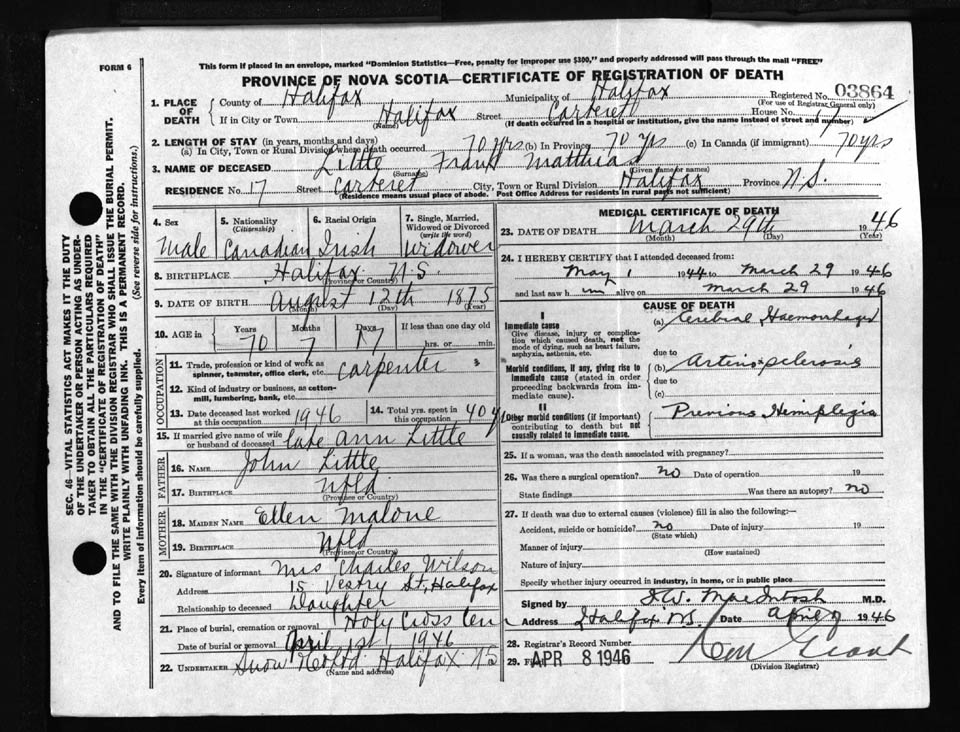 FORM 6
This form if placed in an envelope, marked "Dominion Statistics—Free, penalty for improper use $300," and properly addressed will pass through the mail "FREE"
PROVINCE OF NOVA SCOTIA—CERTIFICATE OF REGISTRATION OF DEATH
Registered No. 03864
(For use of Registrar General only)
1. PLACE OF DEATH County of Halifax Municipality of Halifax
If in City or Town Halifax Street Carteret House No. 17
(Name) (If death occurred in a hospital or institution, give the name instead of street and number)
2. LENGTH OF STAY (in years, months and days)
(a) In City, Town or Rural Division where death occurred 70 yrs (b) In Province 70 yrs (c) In Canada (if immigrant) 70 yrs
3. NAME OF DECEASED Little Frank Matthias
(Surname) (Given name or names)
RESIDENCE No. 17 Street Carteret City, Town or Rural Division Halifax Province N.S.
(Residence means usual place of abode. Post Office Address for residents in rural parts not sufficient)
4. Sex Male
5. Nationality (Citizenship) Canadian
6. Racial Origin Irish
7. Single, Married, Widowed or Divorced (write the word) Widower
8. BIRTHPLACE Halifax N.S.
(Province or Country)
9. DATE OF BIRTH August 12th 1875
(Month) (Day) (Year)
10. AGE in Years 70 Months 7 Days 17 If less than one day old hrs. or min.
OCCUPATION
11. Trade, profession or kind of work as spinner, teamster, office clerk, etc. Carpenter
12. Kind of industry or business, as cotton-mill, lumbering, bank, etc.
13. Date deceased last worked at this occupation 1946
14. Total yrs. spent in this occupation 40 yrs
15. If married give name of wife or husband of deceased late Ann Little
FATHER
16. NAME John Little
17. BIRTHPLACE Nfld
(Province or Country)
MOTHER
18. MAIDEN NAME Ellen Malone
19. BIRTHPLACE Nfld
(Province or Country)
20. Signature of informant Mrs Charles Wilson
Address 15 Vestry St, Halifax
Relationship to deceased Daughter
21. Place of burial, cremation or removal Holy Cross Cem
Date of burial or removal April 1st 1946
22. UNDERTAKER Snow & Co Ltd Halifax NS
(Name and address)
MEDICAL CERTIFICATE OF DEATH
23. DATE OF DEATH March 29th 1946
(Month) (Day) (Year)
24. I HEREBY CERTIFY that I attended deceased from:
May 1 1944 to March 29 1946
and last saw h im alive on March 29 1946
CAUSE OF DEATH
I
Immediate cause
Give disease, injury or complication which caused death, not the mode of dying, such as heart failure, asphyxia, asthenia, etc.
(a) Cerebral Haemorrhage
due to
Morbid conditions, if any, giving rise to immediate cause (stated in order proceeding backwards from immediate cause).
(b) Arteriosclerosis
due to
(c)
II
Other morbid conditions (if important) contributing to death but not causally related to immediate cause.
Previous Hemiplegia
25. If a woman, was the death associated with pregnancy?
26. Was there a surgical operation? no Date of operation 19
State findings Was there an autopsy? no
27. If death was due to external causes (violence) fill in also the following:—
Accident, suicide or homicide? no Date of injury 19
(State which)
Manner of injury
(How sustained)
Nature of injury
Specify whether injury occurred in industry, in home, or in public place
Signed by MacIntosh M.D.
Address Halifax NS Date April 1946
28. Registrar's Record Number
29. Filed APR 8 1946 Grant
(Division Registrar)
SEC. 46—VITAL STATISTICS ACT MAKES IT THE DUTY
OF THE UNDERTAKER OR PERSON ACTING AS UNDER-
TAKER TO OBTAIN ALL THE PARTICULARS REQUIRED
IN THE "CERTIFICATE OF REGISTRATION OF DEATH"
AND TO FILE THE SAME WITH THE DIVISION REGISTRAR WHO SHALL ISSUE THE BURIAL PERMIT.
WRITE PLAINLY WITH UNFADING INK. THIS IS A PERMANENT RECORD.
Every item of information should be carefully supplied. (See reverse side for instructions.)